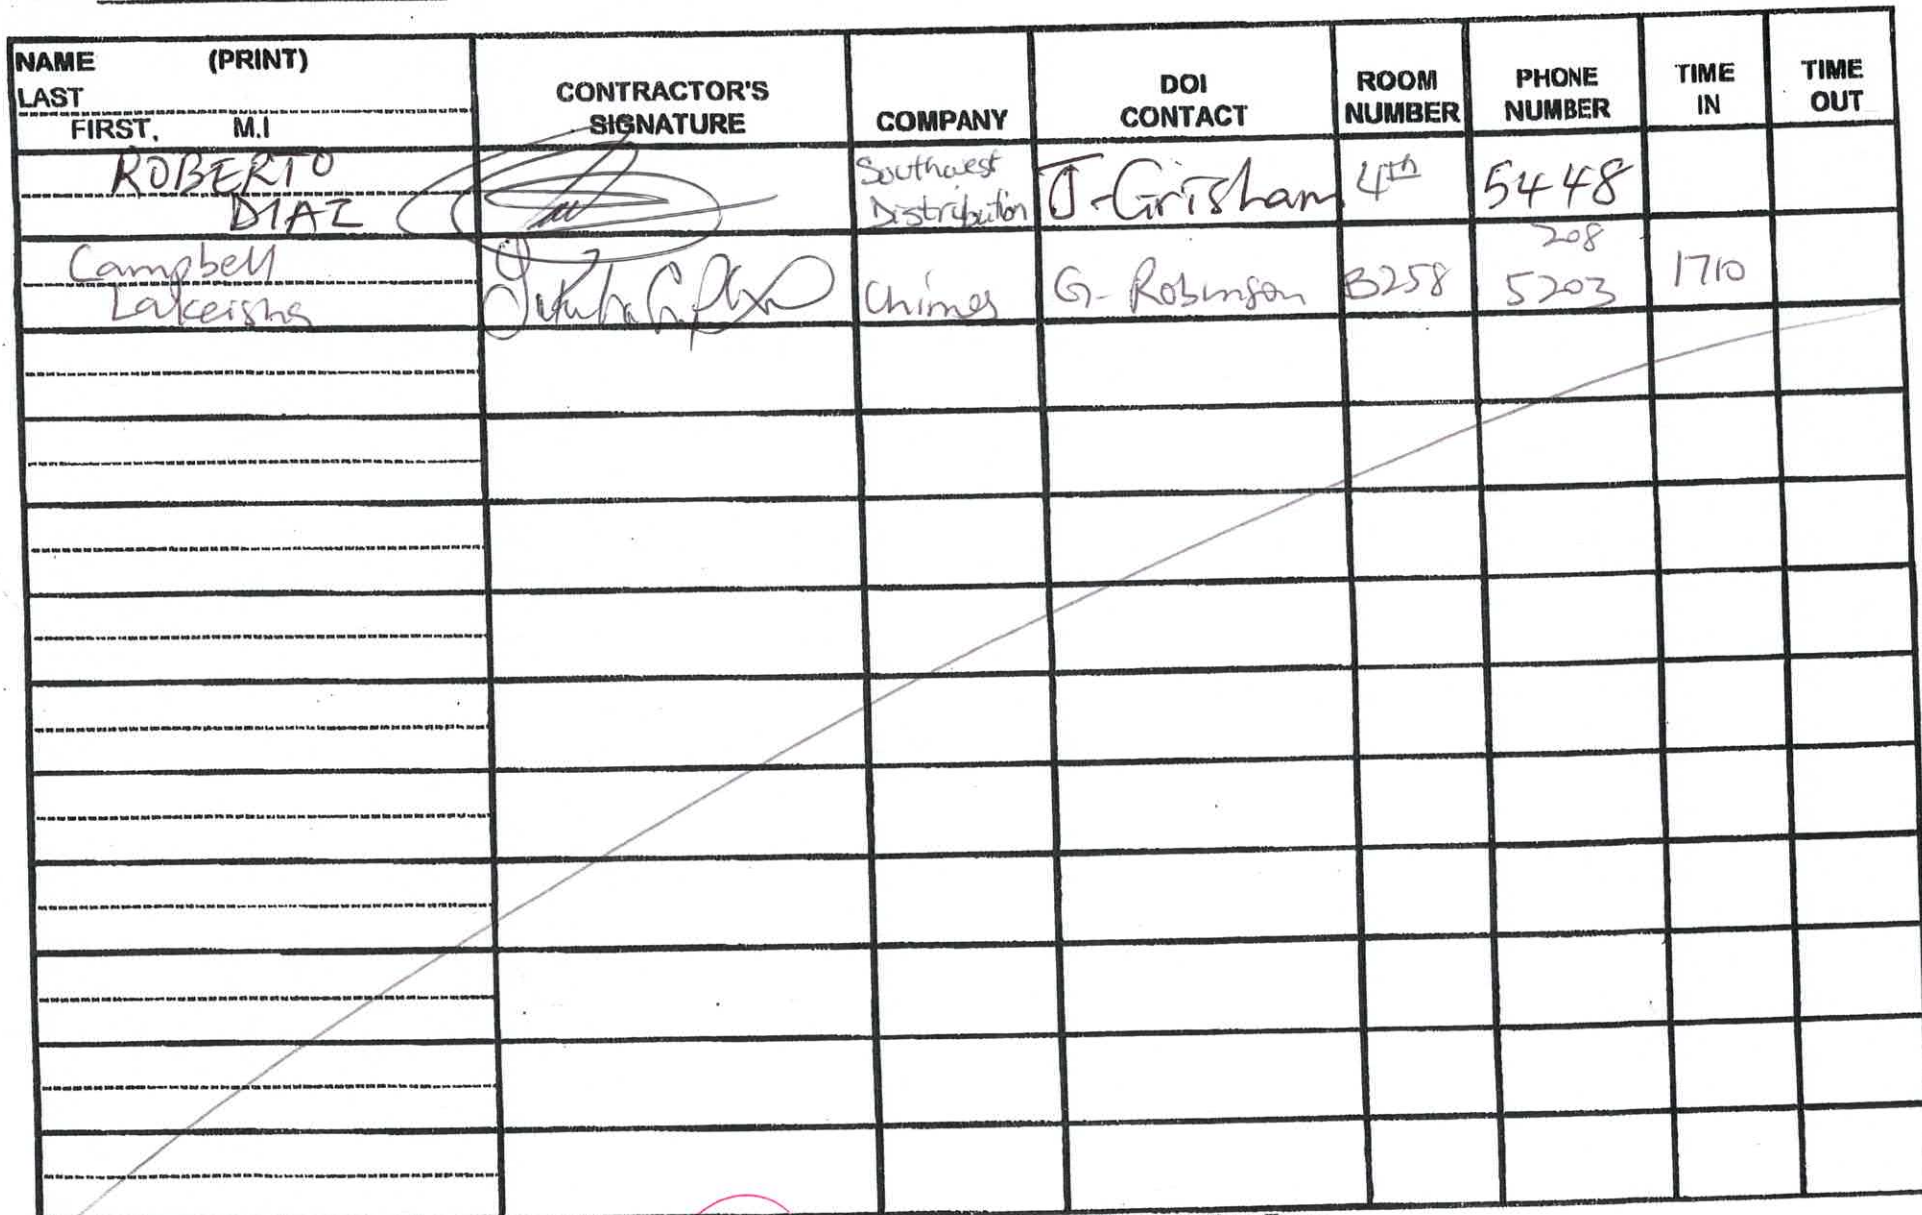 NAME (PRINT)
LAST
FIRST, M.I
CONTRACTOR'S
SIGNATURE
COMPANY
DOI
CONTACT
ROOM
NUMBER
PHONE
NUMBER
TIME
IN
TIME
OUT
ROBERTO
DIAZ
Southwest
Distribution
J-Grisham
4th
5448
Campbell
Lakeisha
Chimes
G- Robinson
B258
208
5203
1710